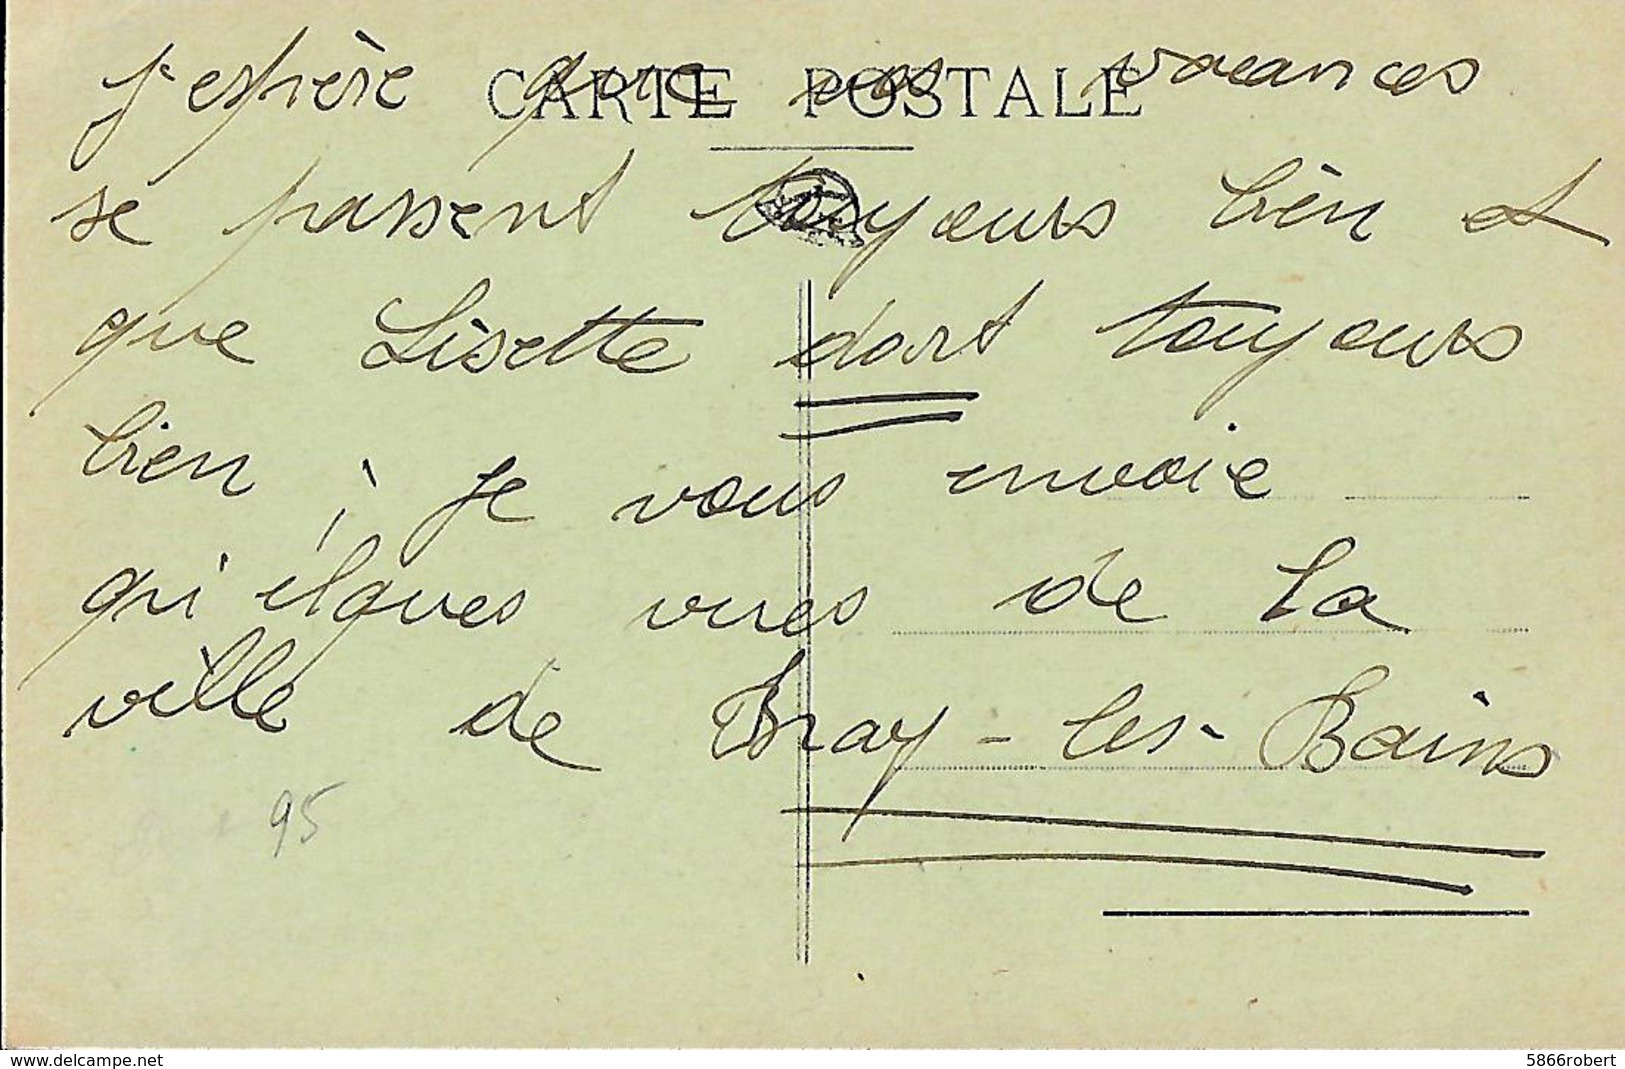 CARTE POSTALE
j'espère que vos vacances
se passent toujours bien et
que Lisette dort toujours
bien ; je vous envoie
quielques vues de la
ville de Bray-les-Bains
95
www.delcampe.net
5866robert